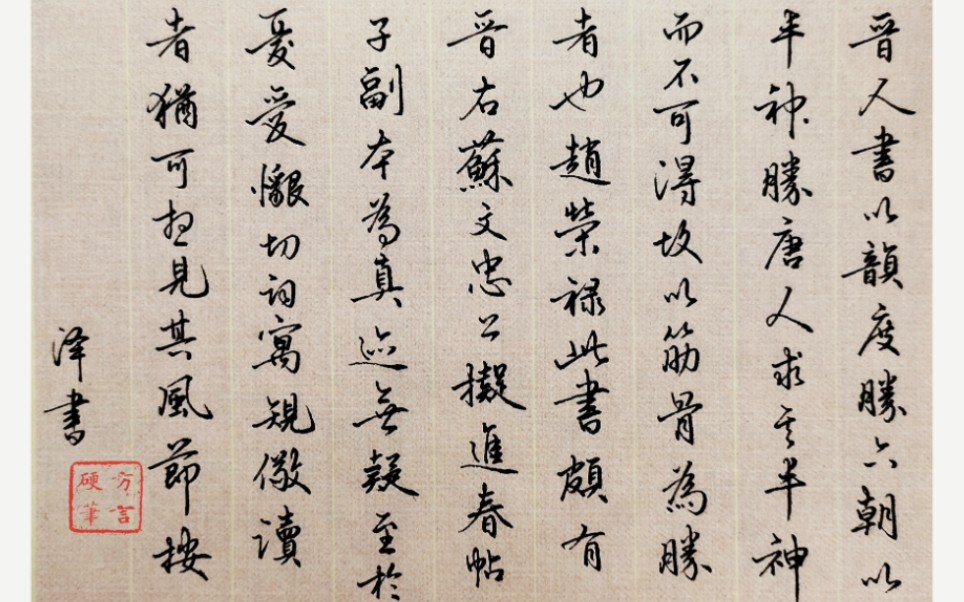 晉人書以韻度勝六朝以
丰神勝唐人求其丰神
而不可得故以筋骨為勝
者也趙榮祿此書頗有
晉右蘇文忠公擬進春帖
子副本為真迹無疑至於
憂愛懇切詞寓規儆讀
者猶可想見其風節按
泽書
方言
硬筆